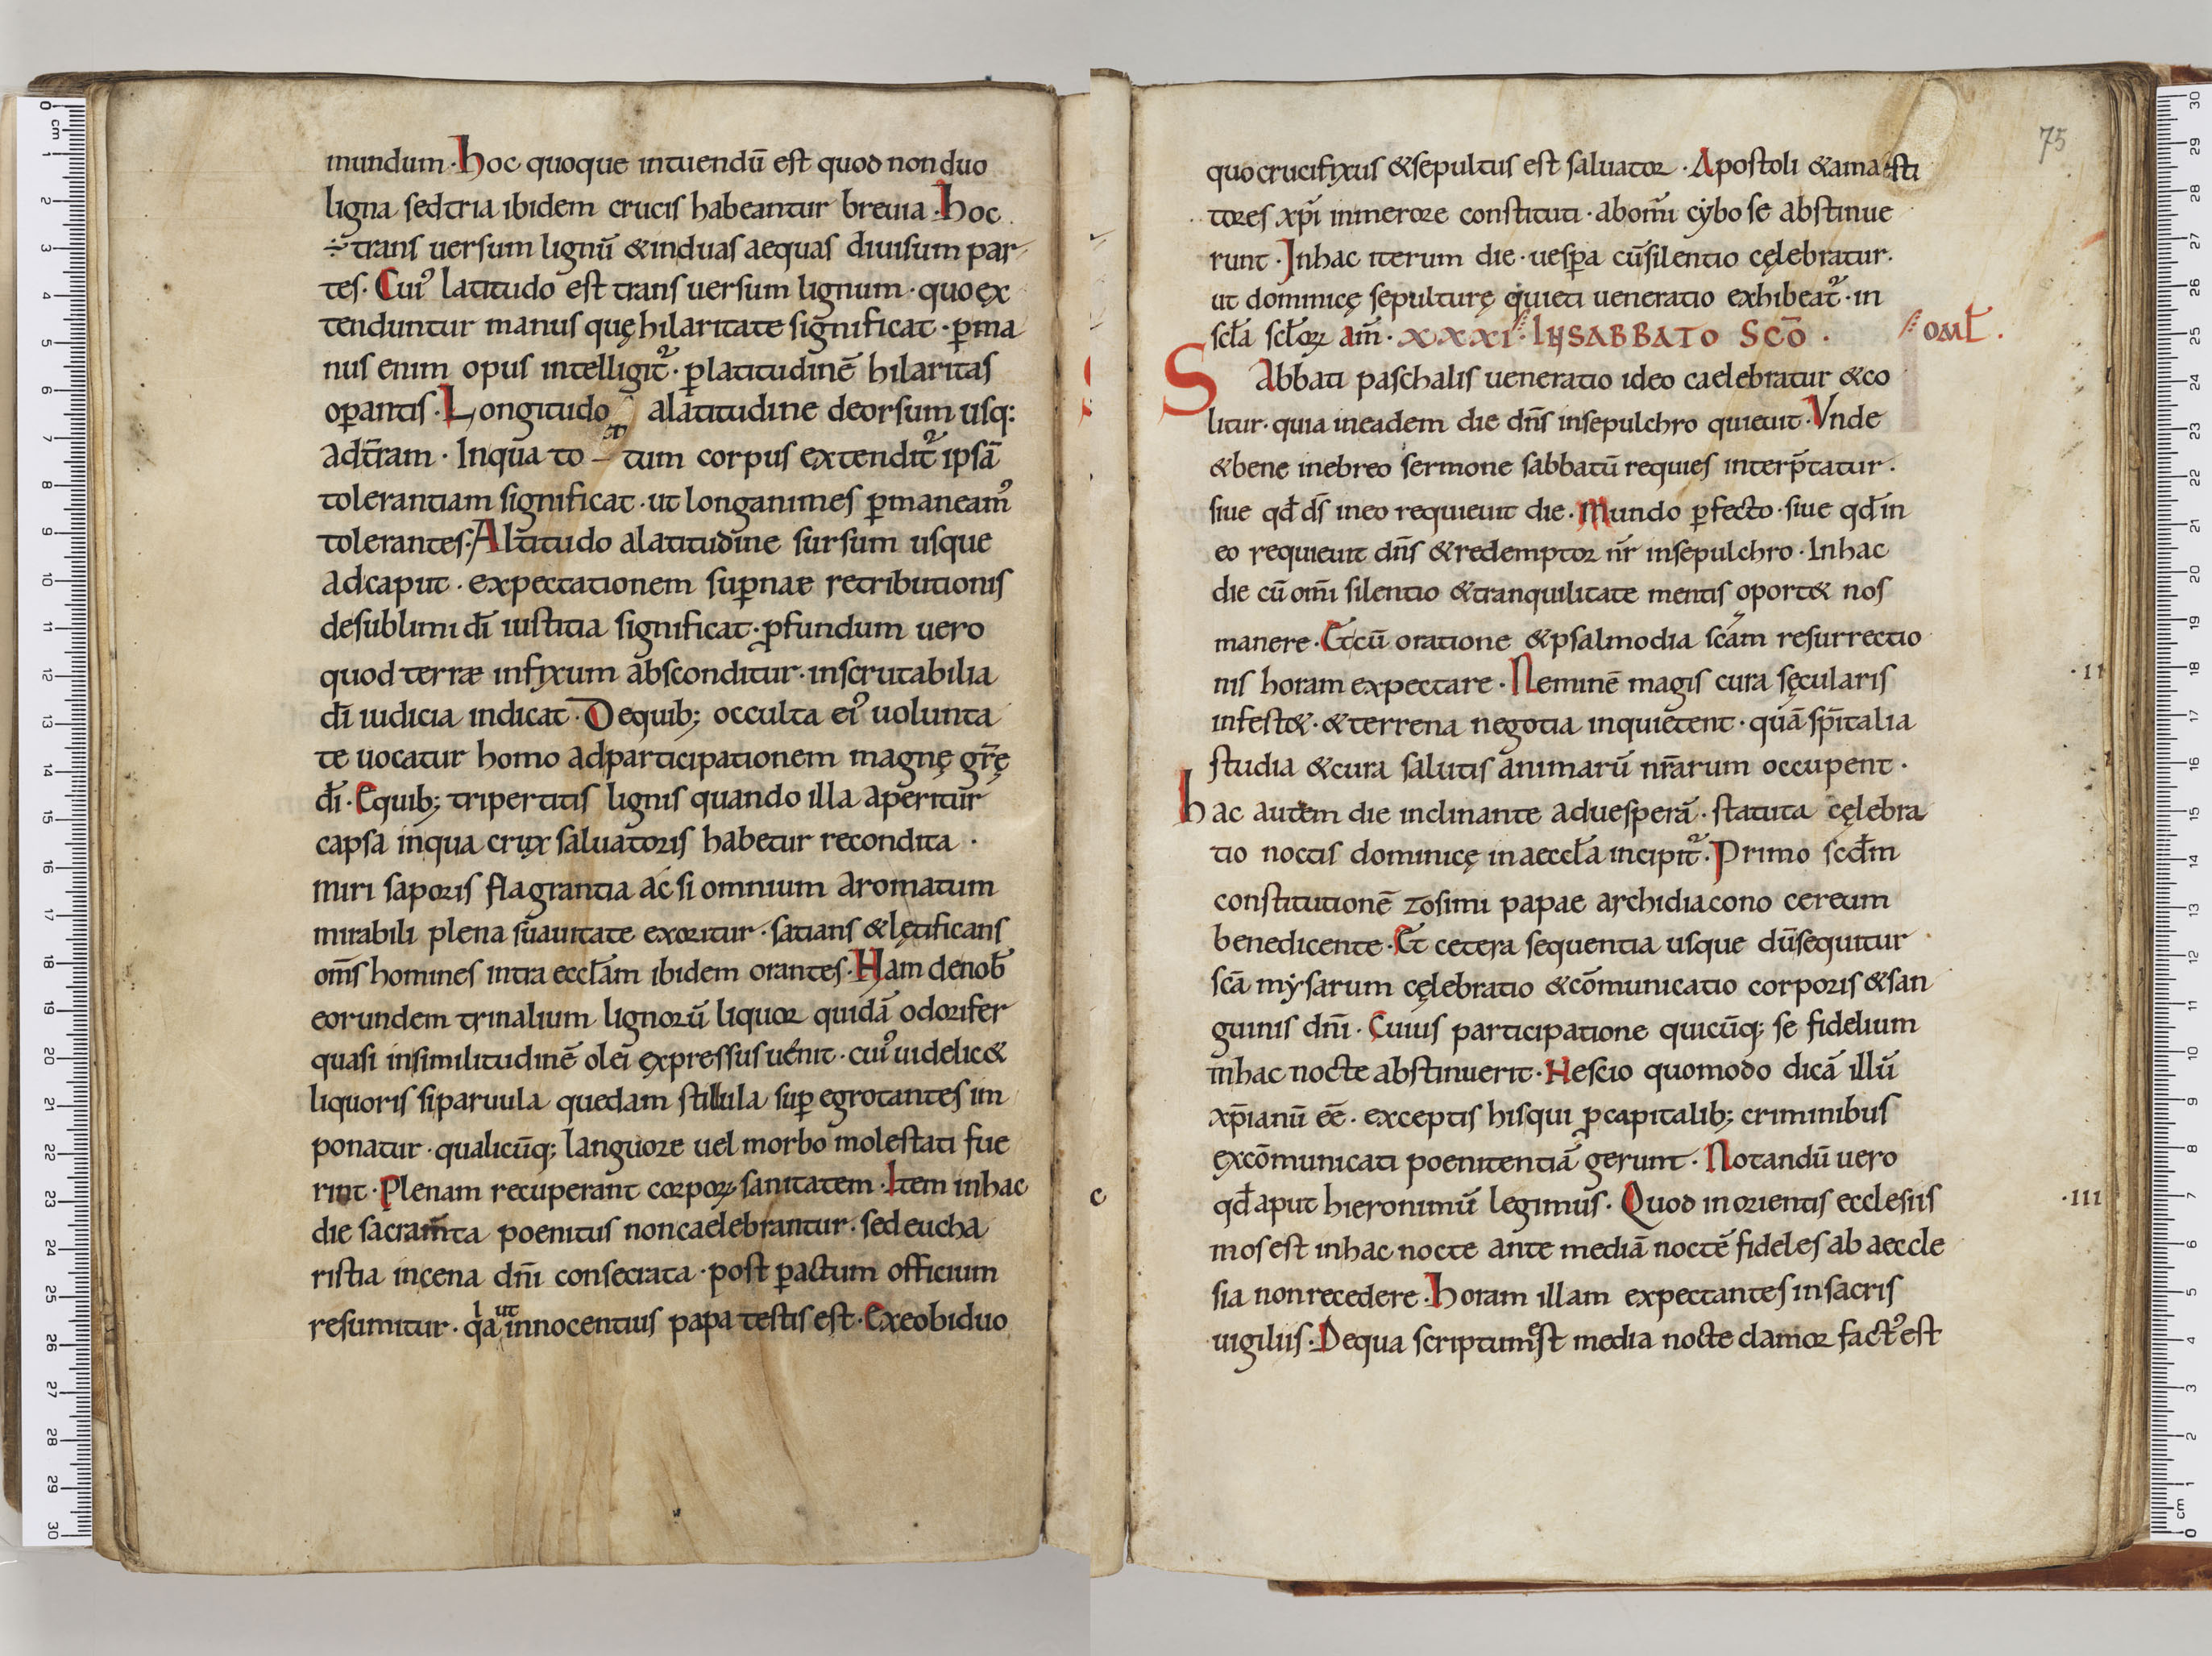 mundum · hoc quoque intuendū est quod non duo
ligna sed tria ibidem crucis habeantur breuia · hoc
÷ trans uersum lignū & induas aequas diuisum par
tes · Cui᾽ latitudo est trans uersum lignum · quo ex
tenduntur manus quę hilaritate significat · p̱ma
nus enim opus intelligit᷑ · p̱ latitudinē hilaritas
op̱antis · Longitudo alatitudine deorsum usq:
adt̄ram · Inqua to – tum corpus extendit᷑ ipsā
tolerantiam significat · ut longanimes p̱maneam᾽
tolerantes · Altitudo alatitudine sursum usque
adcaput · expectationem sup̱nae retributionis
desublimi dī iustitia significat · ꝓfundum uero
quod terrae infixum absconditur · inscrutabilia
dī iudicia indicat · Dequib; occulta ei᾽ uolunta
te uocatur homo adparticipationem magnę gr̄ę
dī · Equib; tripertitis lignis quando illa aperitur
capsa inqua crux saluatoris habetur recondita ·
miri saporis flagrantia ac si omnium aromatum
mirabili plena suauitate exoritur · satians & lętificans
om̄s homines intra eccƚam ibidem orantes · Nam denob̄
eorundem trinalium lignorū liquor quidā odorifer
quasi insimilitudinē olei expressus uenit · cui᾽ uidelic&
liquoris siparuula quedam stillula sup̱ egrotantes im
ponatur · qualicūq; languore uel morbo molestati fue
rint · Plenam recuperant corpoꝝ sanitatem · Item inhac
die sacram̄ta poenitus non caelebrantur · sed eucha
ristia incena dn̄i consecrata · post p̱actum officium
l ut
resumitur · q̄a innocentius papa testis est · Ex eo biduo
75
quo crucifixus & sepultus est saluator · Apostoli & ama xsti
tores xp̄i inmerore constituti · abom̄i cẏbo se abstinue
runt · Inhac iterum die · uesp̱a cū silentio cęlebratur ·
ut dominicę sepulturę quieti ueneratio exhibeat᷑ · in
scƚa scƚoꝝ am̄ · XXXI · IN SABBATO SCO · omƚ .
SAbbati paschalis ueneratio ideo caelebratur & co
litur · quia ineadem die dn̄s insepulchro quieuit · Vnde
& bene inebreo sermone sabbatū requies interp̄tatur ·
siue qđ ds̄ ineo requieuit die · Mundo p̱fecto · siue qđ in
eo requieuit dn̄s & redemptor nr̄ insepulchro · Inhac
die cū om̄i silentio & tranquilitate mentis oport& nos
manere · Et cū oratione & psalmodia scām resurrectio
nis horam expectare · Neminē magis cura sęcularis ·II
infest& · & terrena negotia inquietent · quā sp̄italia
studia & cura salutis animarū nr̄arum occupent ·
hac autem die inclinante aduesperā · statuta cęlebra
tio noctis dominicę inaeccƚa incipit᷑ · Primo scđm
constitutionē zosimi papae archidiacono cereum
benedicente · Et cetera sequentia usque dū sequitur
scā mẏsarum cęlebratio & cōmunicatio corporis & san
guinis dn̄i · Cuius participatione quicūq; se fidelium
inhac nocte abstinuerit · Nescio quomodo dicā illū
xp̄ianū eē · exceptis his qui ꝓ capitalib; criminibus
excōmunicati poenitentiā gerunt · Notandū uero
qđ aput hieronimū legimus · Quod inorientis ecclesiis ·III
mos est inhac nocte ante mediā noctē fideles ab aeccle
sia non recedere · horam illam expectantes insacris
uigiliis · Dequa scriptum est media nocte clamor fact᾽ est